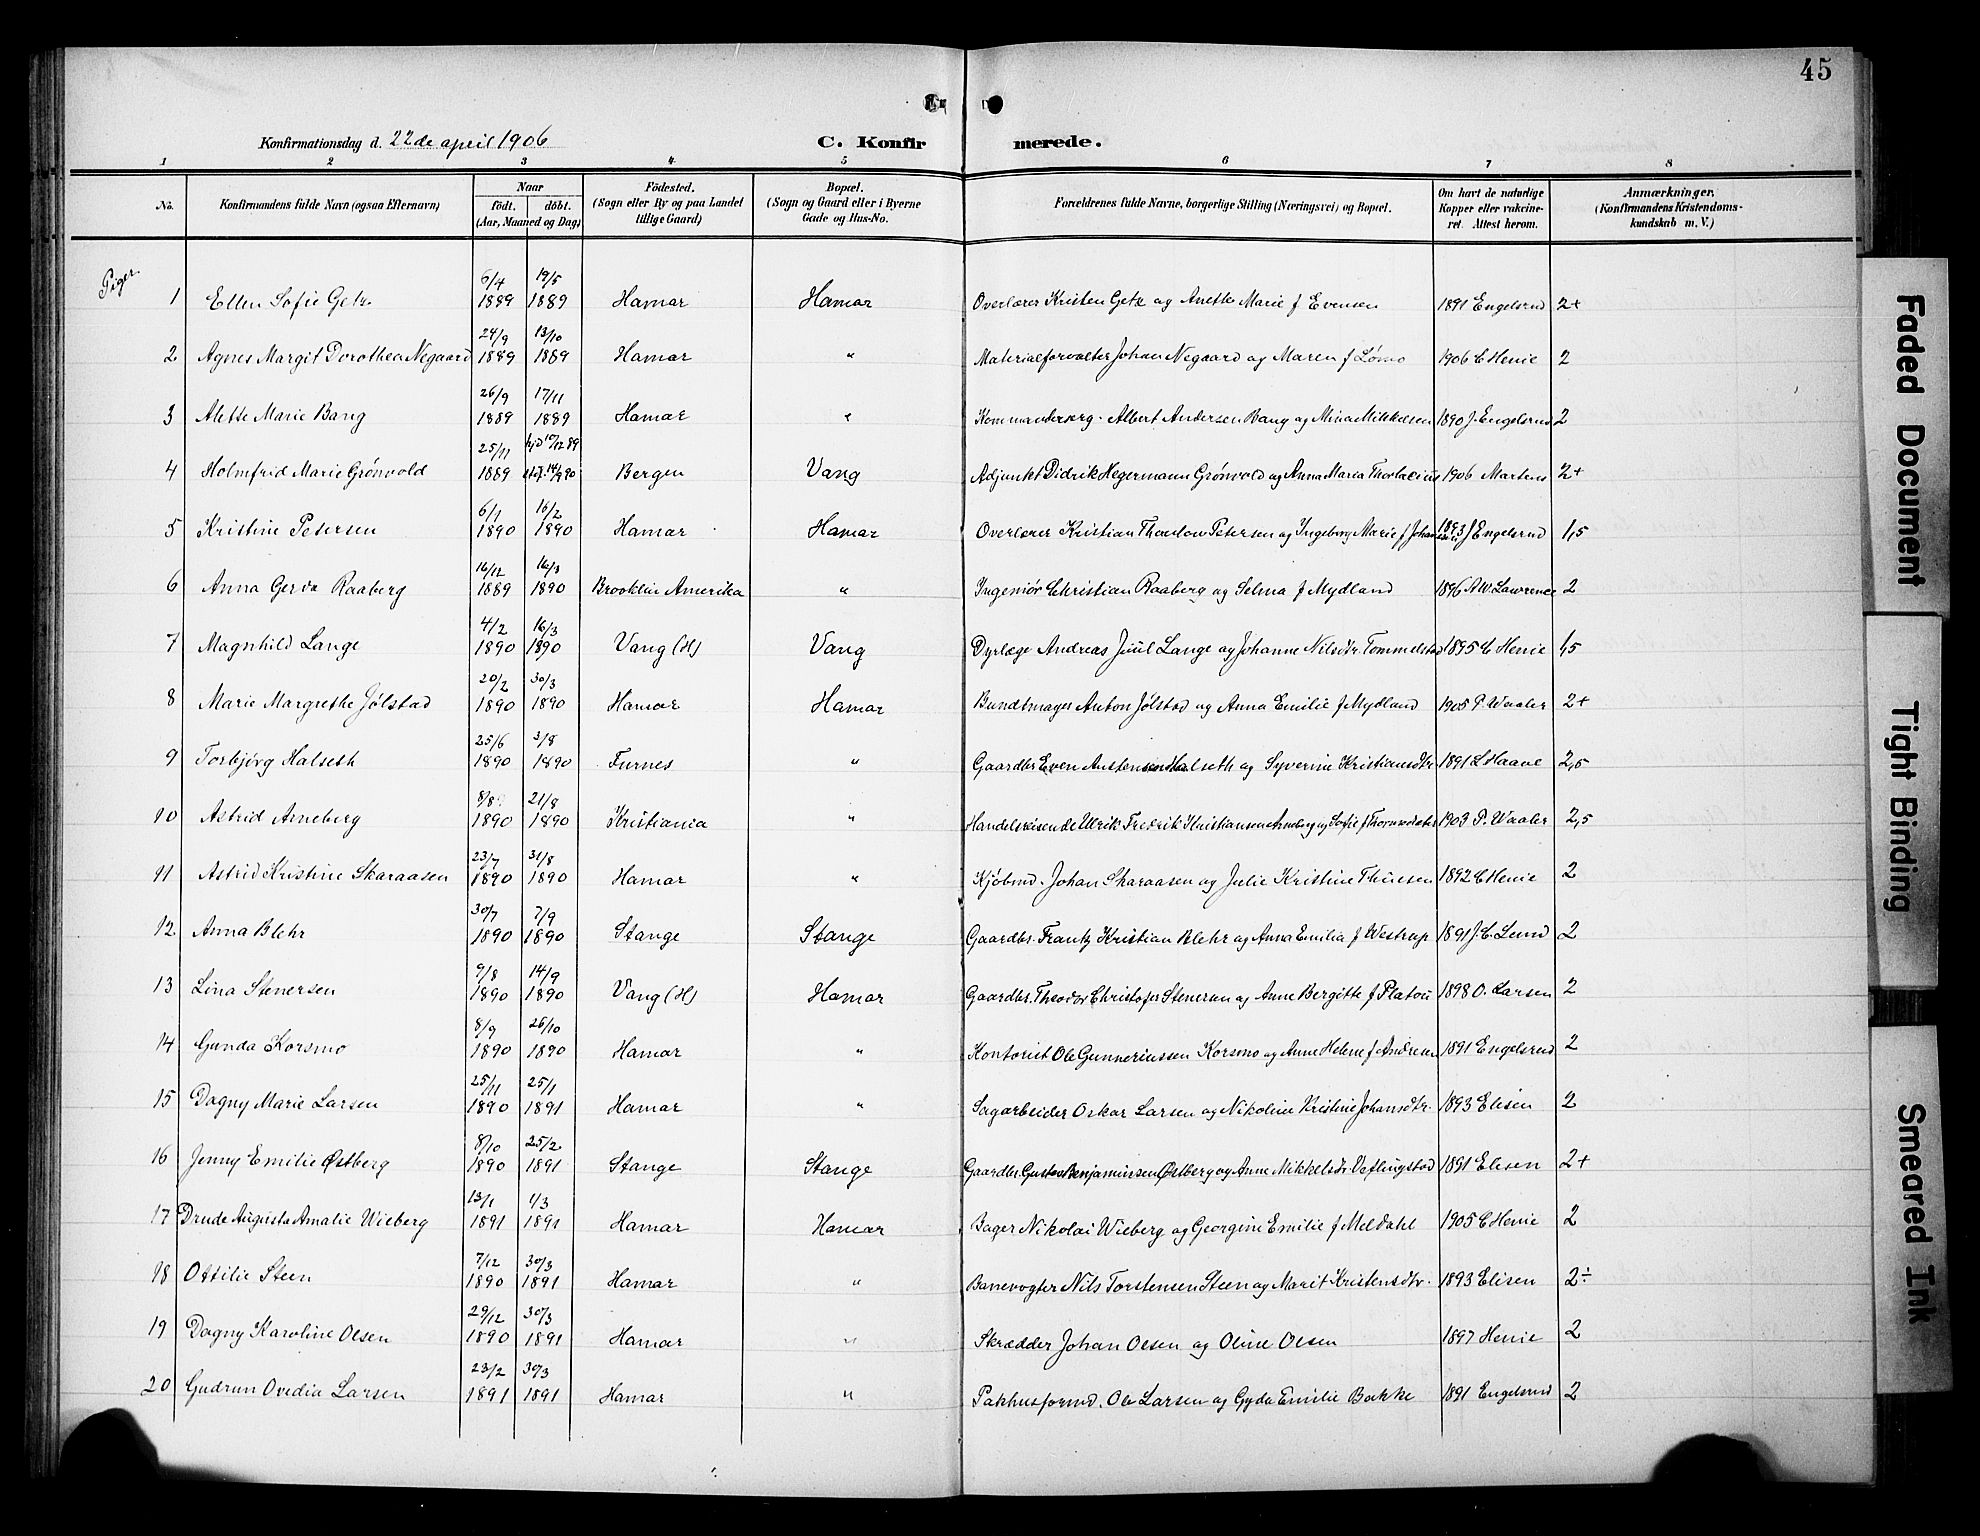 45
Konfirmationsdag d. 22de april 1906
C. Konfirmerede.
1 2 3 4 5 6 7 8
No. Konfirmandens fulde Navn (ogsaa Efternavn) Naar födt. döbt. (Aar, Maaned og Dag) Födested. (Sogn eller By og paa Landet tillige Gaard) Bopæl. (Sogn og Gaard eller i Byerne Gade og Hus-No. Forældrenes fulde Navne, borgerlige Stilling (Næringsvei) og Bopæl. Om havt de naturlige Kopper eller vakcineret. Attest herom. Anmærkninger. (Konfirmandens Kristendomskundskab m. V.)
Piger.
1 Ellen Sofie Getz 6/4 1889 19/5 1889 Hamar Hamar Overlærer Kristen Getz og Anette Marie f Evensen 1891 Engelsrud 2+
2 Agnes Margit Dorothea Negaard 24/9 1889 13/10 1889 Hamar " Materialforvalter Johan Negaard og Maren f Lømo 1906 C Henie 2
3 Alette Marie Bang 26/9 1889 17/11 1889 Hamar " Kommandersrg. Albert Andersen Bang og Mina Mikkelsen 1890 J. Engelsrud 2
4 Holmfrid Marie Grönvold 25/11 1889 hjd 17/12 89 14/2 90 Bergen Vang Adjunkt Didrik Hegermann Grönvold og Anna Maria Thorlacius 1906 Martens 2+
5 Kristine Petersen 6/1 1890 16/2 1890 Hamar Hamar Overlærer Kristian Thaulow Petersen og Ingeborg Marie f Johannesen 1893 J Engelsrud 1,5
6 Anna Gerda Raaberg 16/12 1889 16/3 1890 Brooklin Amerika " Ingeniör Christian Raaberg og Selma f Mydland 1896 A W. Lawrence 2
7 Magnhild Lange 4/2 1890 16/3 1890 Vang (H) Vang Dyrlæge Andreas Juul Lange og Johanne Nilsdtr. Tommelstad 1895 C Henie 1,5
8 Marie Margrethe Jölstad 20/2 1890 30/3 1890 Hamar Hamar Bundtmager Anton Jölstad og Anna Emilie f Mydland 1905 P. Waaler 2+
9 Torbjörg Halseth 25/6 1890 3/8 1890 Furnes " Gaardbr Even Austensen Halseth og Syverine Kristiansdtr 1891 L Haave 2,5
10 Astrid Arneberg 8/8 1890 21/8 1890 Kristiania " Handelsreisende Ulrik Fredrik Kristiansen Arneberg og Sofie f 1903 P. Waaler 2,5
11 Astrid Kristine Skaraasen 23/7 1890 31/8 1890 Hamar " Kjöbmd. Johan Skaraasen og Julie Kristine Thuesen 1892 C Henie 2
12 Anna Blehr 30/7 1890 7/9 1890 Stange Stange Gaardbr. Frantz Kristian Blehr og Anna Emilia f Westrup 1891 J. C. Lund 2
13 Lina Stenersen 9/8 1890 14/9 1890 Vang (H) Hamar Gaardbr. Theodor Christofer Stenersen og Anne Bergitte f Platou 1898 O. Larsen 2
14 Gunda Korsmo 8/9 1890 26/10 1890 Hamar " Kontorist Ole Gunneriussen Korsmo og Anne Helene f Andresen 1891 Engelsrud 2
15 Dagny Marie Larsen 25/11 1890 25/1 1891 Hamar " Sagarbeider Oskar Larsen og Nikoline Kristine Johansdtr. 1893 Elisen 2
16 Jenny Emilie Østberg 8/10 1890 25/2 1891 Stange Stange Gaardbr. Gustav Benjaminsen Østberg og Anne Mikkelsdtr Veflingstad 1891 Elisen 2+
17 Drude Augusta Amalie Wieberg 13/1 1891 1/3 1891 Hamar Hamar Bager Nikolai Wieberg og Georgine Emilie f Meldahl 1905 C Henie 2
18 Ottilie Steen 7/12 1890 30/3 1891 Hamar " Banevogter Nils Torstensen Steen og Marit Kristensdtr. 1893 Elisen 2÷
19 Dagny Karoline Olsen 29/12 1890 30/3 1891 Hamar " Skrædder Johan Olsen og Oline Olsen 1897 Henie 2
20 Gudrun Ovedia Larsen 23/2 1891 30/3 1891 Hamar " Pakhusformd. Ole Larsen og Gyda Emilie Bakke 1891 Engelsrud 2
Faded Document
Tight Binding
Smeared Ink